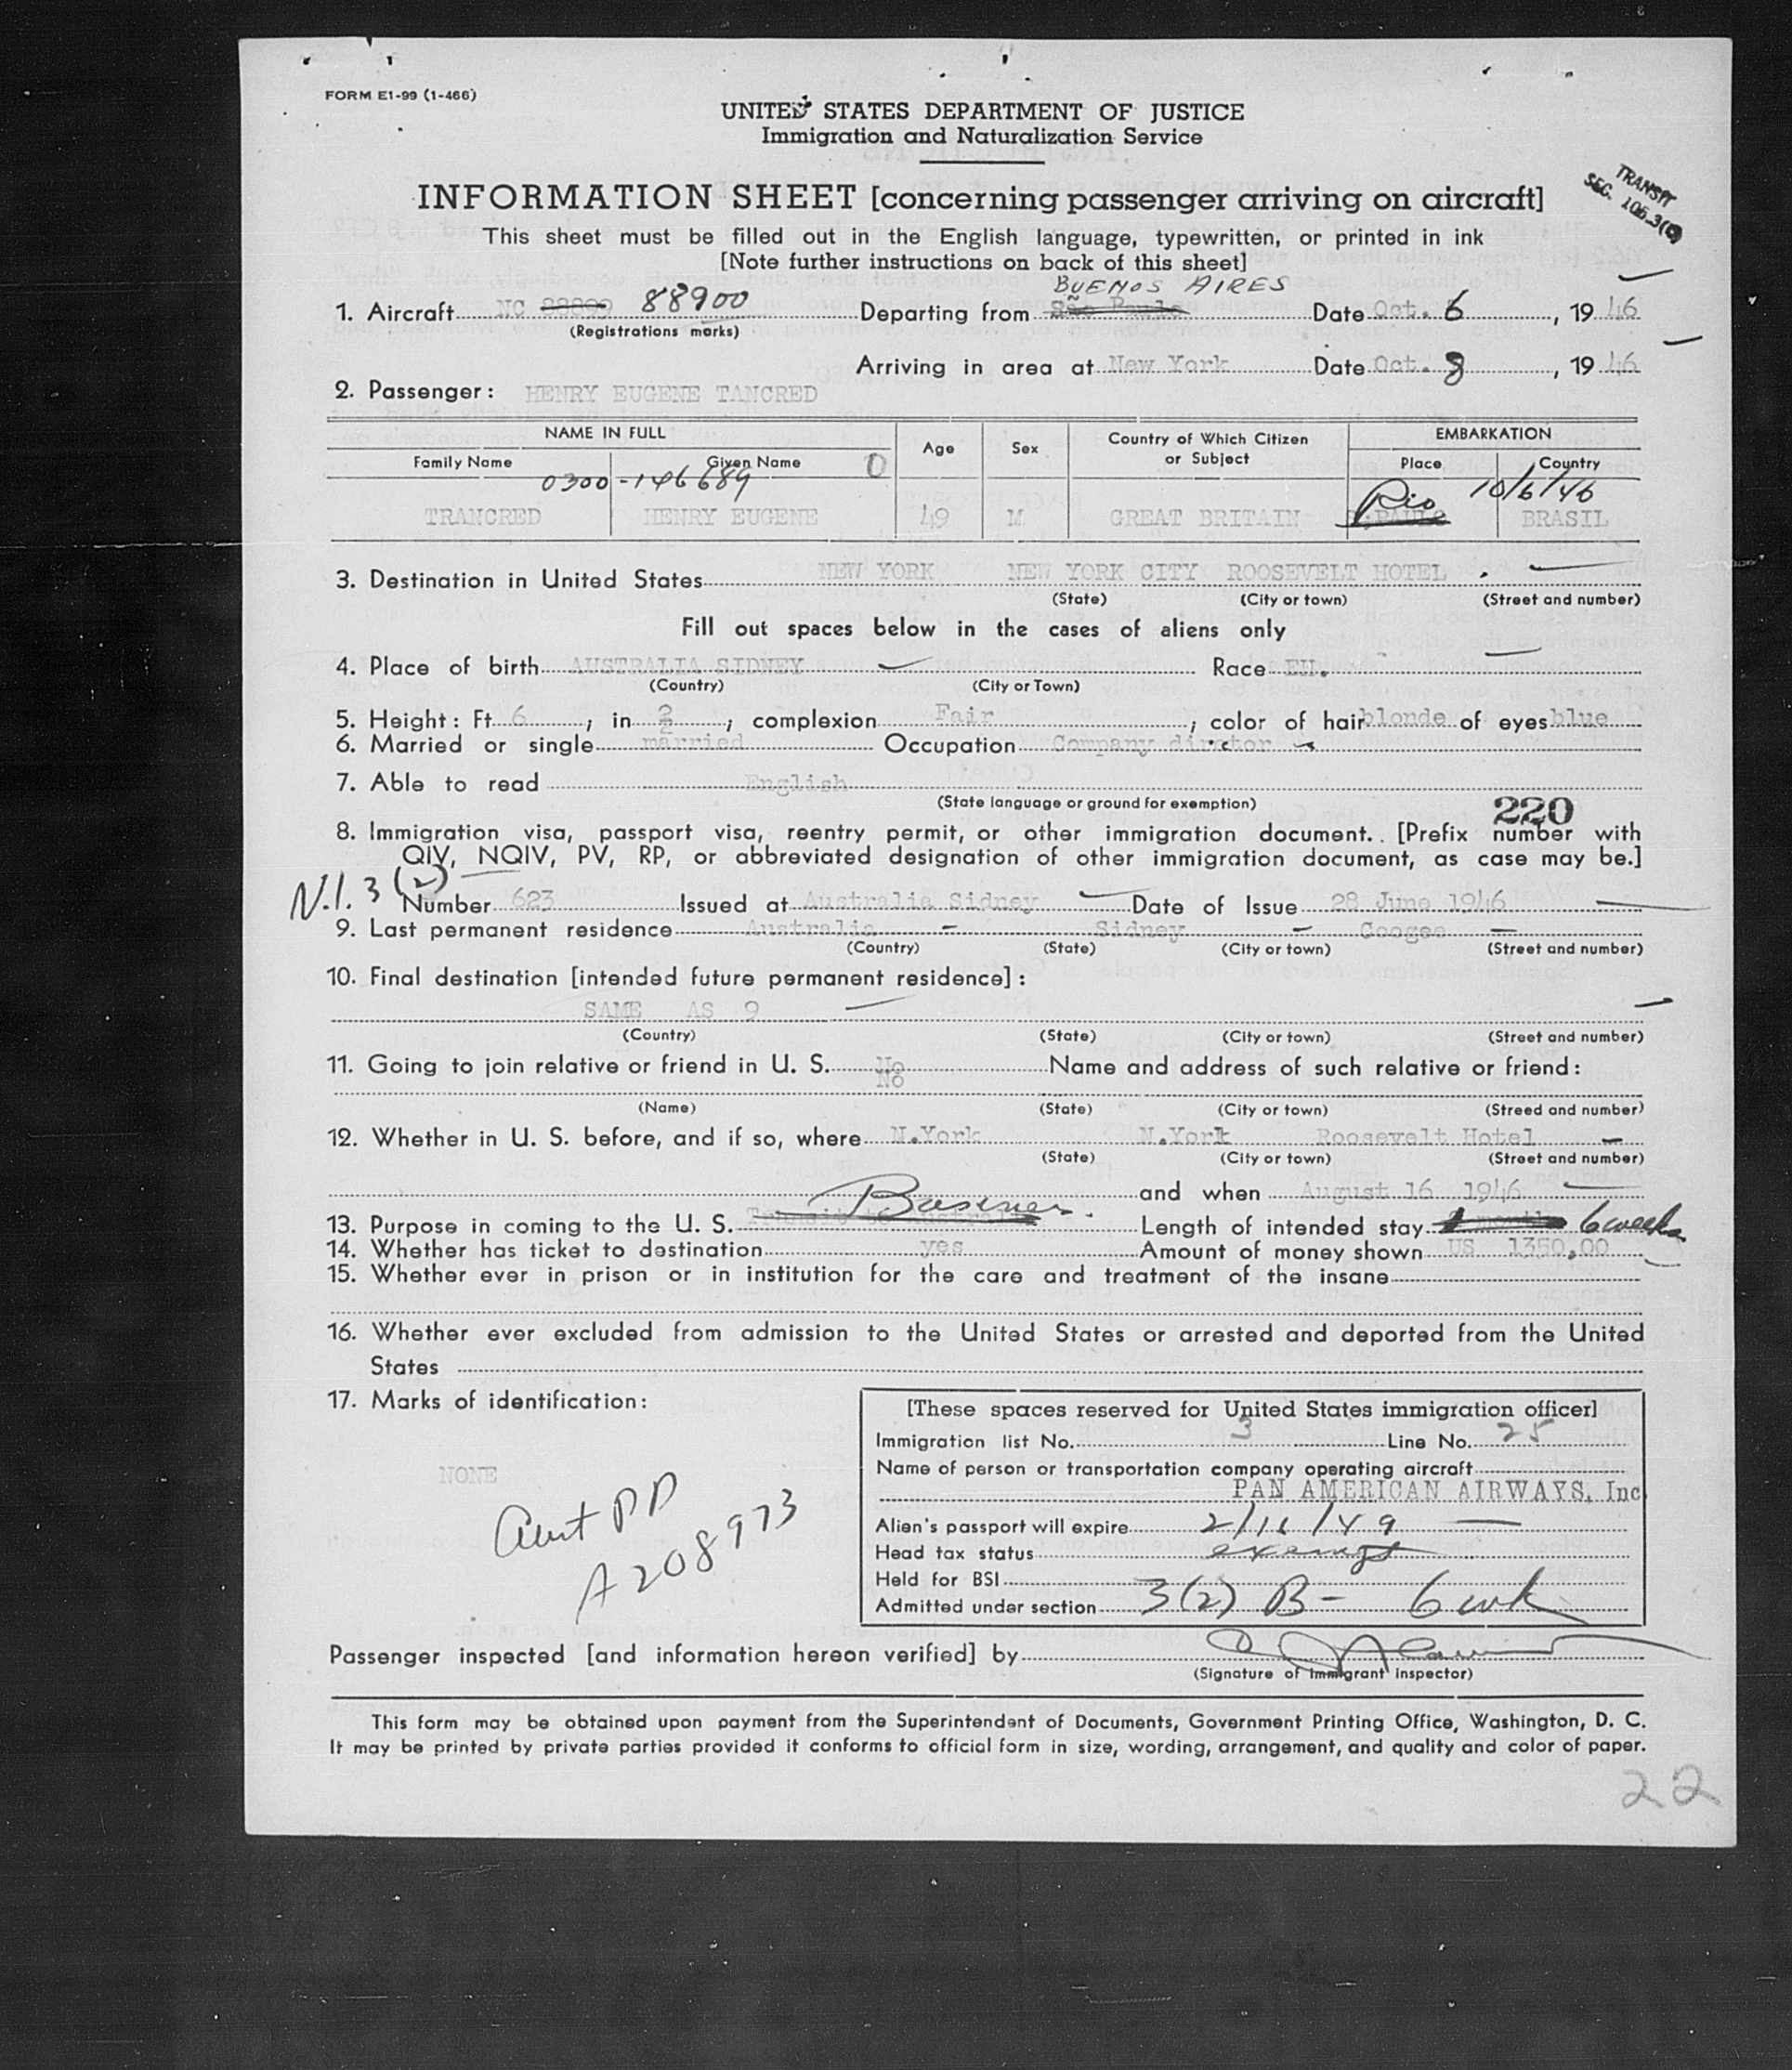 FORM E1-99 (1-466)
UNITED STATES DEPARTMENT OF JUSTICE
Immigration and Naturalization Service
INFORMATION SHEET [concerning passenger arriving on aircraft]
TRANSIT
SEC. 105.3(c)
This sheet must be filled out in the English language, typewritten, or printed in ink
[Note further instructions on back of this sheet]
BUENOS AIRES
1. Aircraft NC 88899 88900 Departing from São Paulo Date Oct. 6, 19 46
(Registrations marks)
Arriving in area at New York Date Oct. 8, 19 46
2. Passenger: HENRY EUGENE TANCRED
NAME IN FULL Age Sex Country of Which Citizen or Subject EMBARKATION
Family Name Given Name 0 Place Country
0300-146689 Rio 10/6/46
TRANCRED HENRY EUGENE 49 M GREAT BRITAIN S.PAULO BRASIL
3. Destination in United States NEW YORK NEW YORK CITY ROOSEVELT HOTEL
(State) (City or town) (Street and number)
Fill out spaces below in the cases of aliens only
4. Place of birth AUSTRALIA SIDNEY Race EU.
(Country) (City or Town)
5. Height: Ft. 6; in 2; complexion Fair; color of hair blonde of eyes blue
6. Married or single married Occupation Company director
7. Able to read English
(State language or ground for exemption)
220
8. Immigration visa, passport visa, reentry permit, or other immigration document. . [Prefix number with
QIV, NQIV, PV, RP, or abbreviated designation of other immigration document, as case may be.]
N.I. 3 (2)
Number 623 Issued at Australia Sidney Date of Issue 28 June 1946
9. Last permanent residence Australia Sidney Coogee
(Country) (State) (City or town) (Street and number)
10. Final destination [intended future permanent residece]:
SAME AS 9
(Country) (State) (City or town) (Street and number)
11. Going to join relative or friend in U. S. No Name and address of such relative or friend:
No
(Name) (State) (City or town) (Streed and number)
12. Whether in U. S. before, and if so, where N.York N.York Roosevelt Hotel
(State) (City or town) (Street and number)
and when August 16 1946
Business
13. Purpose in coming to the U. S. Transit to Australia Length of intended stay 6 weeks
14. Whether has ticket to destination yes Amount of money shown US 1350.00
15. Whether ever in prison or in institution for the care and treatment of the insane
16. Whether ever excluded from admission to the United States or arrested and deported from the United
States
17. Marks of identification:
NONE
A208973
[These spaces reserved for United States immigration officer]
Immigration list No. 3 Line No. 25
Name of person or transportation company operating aircraft
PAN AMERICAN AIRWAYS, Inc
Alien's passport will expire 2/16/49
Head tax status exempt
Held for BSI
Admitted under section 3(2) B- 6 wk
Passenger inspected [and information hereon verified] by
(Signature of Immigrant inspector)
This form may be obtained upon payment from the Superintendent of Documents, Government Printing Office, Washington, D. C.
It may be printed by private parties provided it conforms to official form in size, wording, arrangement, and quality and color of paper.
22